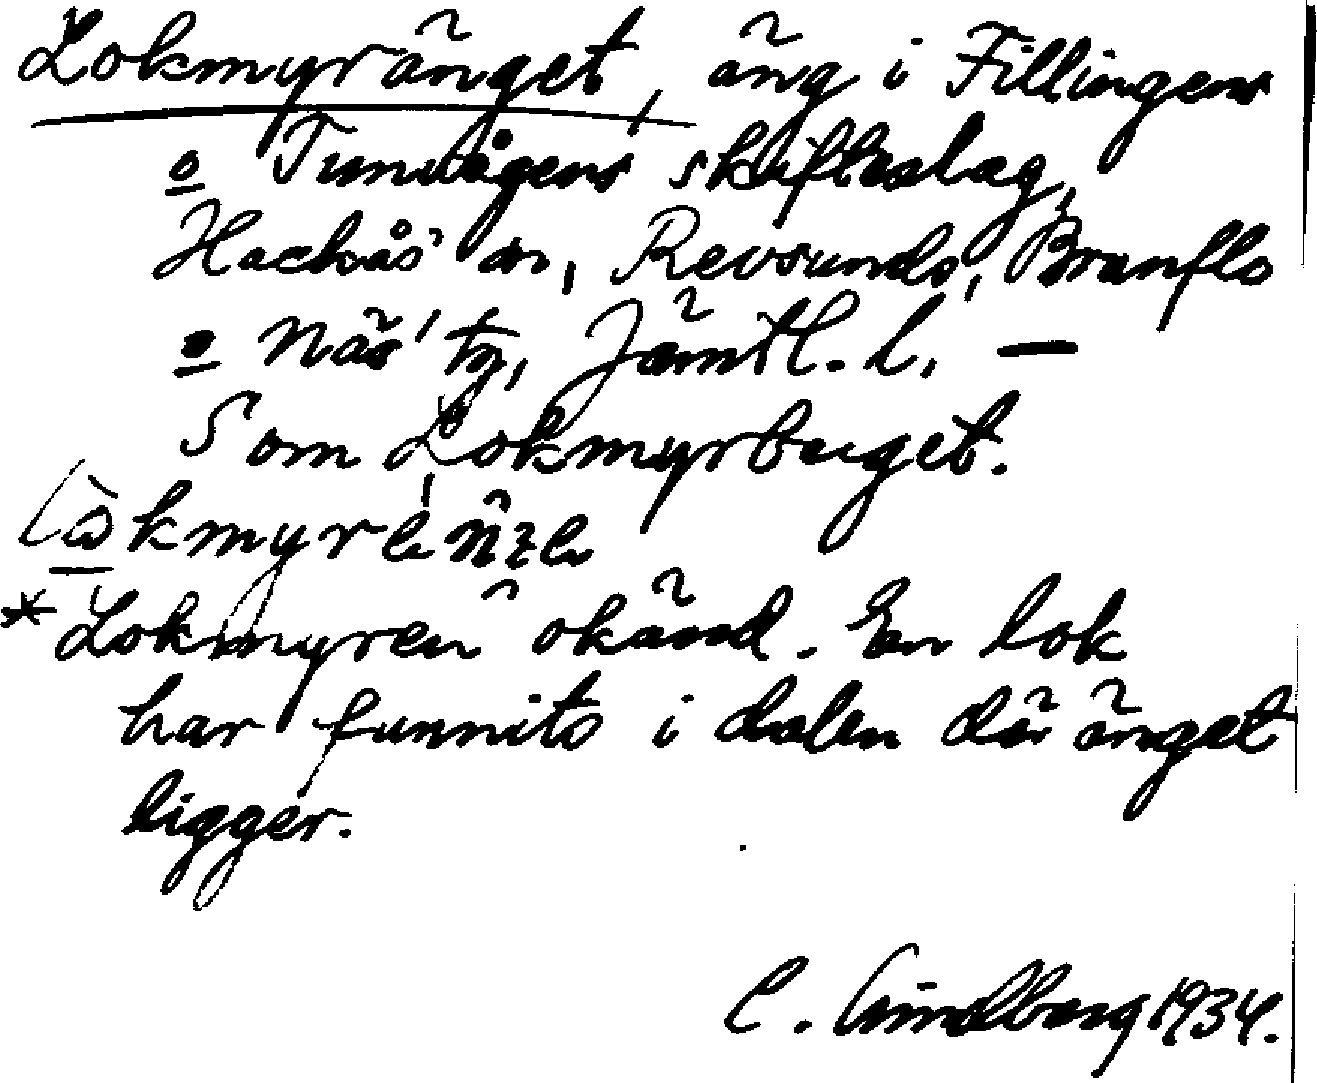 Lokmyränget, äng i Fillingens
o Tunvågens skifteslag,
Hackås sn, Revsunds, Brunflo
o Näs tg, Jämtl. l. —
Som Lokmyrberget.
Lokmyren okänd. En lok
har funnits i dalen där änget
ligger.
C. Lindberg 1934.